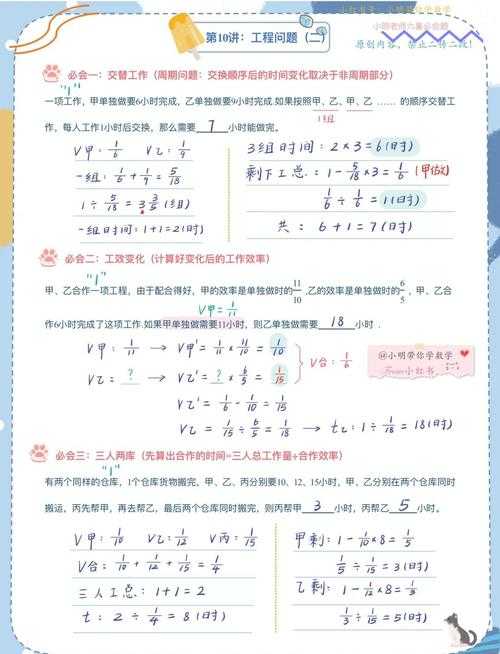 小红书: 小明带你学数学
小明老师六奥必会题
第10讲：工程问题（二）
原创内容，禁止二传二改！
必会一：交替工作（周期问题：交换顺序后的时间变化取决于非周期部分）
"1"
一项工作，甲单独做要6小时完成，乙单独做要9小时完成.如果按照甲、乙、甲、乙 …… 的顺序交替工
1组
作，每人工作1小时后交换，那么需要 7 小时能做完。
V甲：1/6 V乙：1/9
一组：1/6+1/9=5/18
1÷5/18=3 3/5(组)
一组时间：1+1=2(时)
3组时间：2×3=6(时)
剩下工总：1-5/18×3=1/6 (甲做)
1/6÷1/6=1(时)
共：6+1=7(时)
必会二：工效变化（计算好变化后的工作效率）
"1"
甲、乙合作一项工程，由于配合得好，甲的效率是单独做时的11/10 ,乙的效率是单独做时的6/5，甲、乙合
V甲=1/11
作6小时完成了这项工作.如果甲单独做需要11小时，则乙单独做需要 18 小时．
V甲：1/11 → V甲'=1/11×11/10=1/10
V乙=？ → V乙'=？×6/5=1/15
V合：1/6
V乙'=1/6-1/10=1/15
V乙=1/15÷6/5=1/18 → t乙：1÷1/18=18(时)
@小明带你学数学
From小红书
必会三：三人两库（先算出合作的时间=三人总工作量÷合作效率）
"1"
有两个同样的仓库，1个仓库货物搬完，甲、乙、丙分别要10、12、15小时，甲、乙分别在两个仓库同时
搬运，丙先帮甲，再去帮乙，最后两个仓库同时搬完，则丙帮甲 3 小时，丙帮乙 5 小时．
V甲：1/10 V乙：1/12 V丙：1/15
V合：1/10+1/12+1/15=1/4
三人工总：1+1=2
t：2÷1/4=8(时)
甲剩：1-1/10×8=1/5
1/5÷1/15=3(时)
乙剩：1-1/12×8=1/3
1/3÷1/15=5(时)